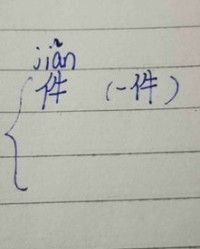 jiǎn
件 （一件）